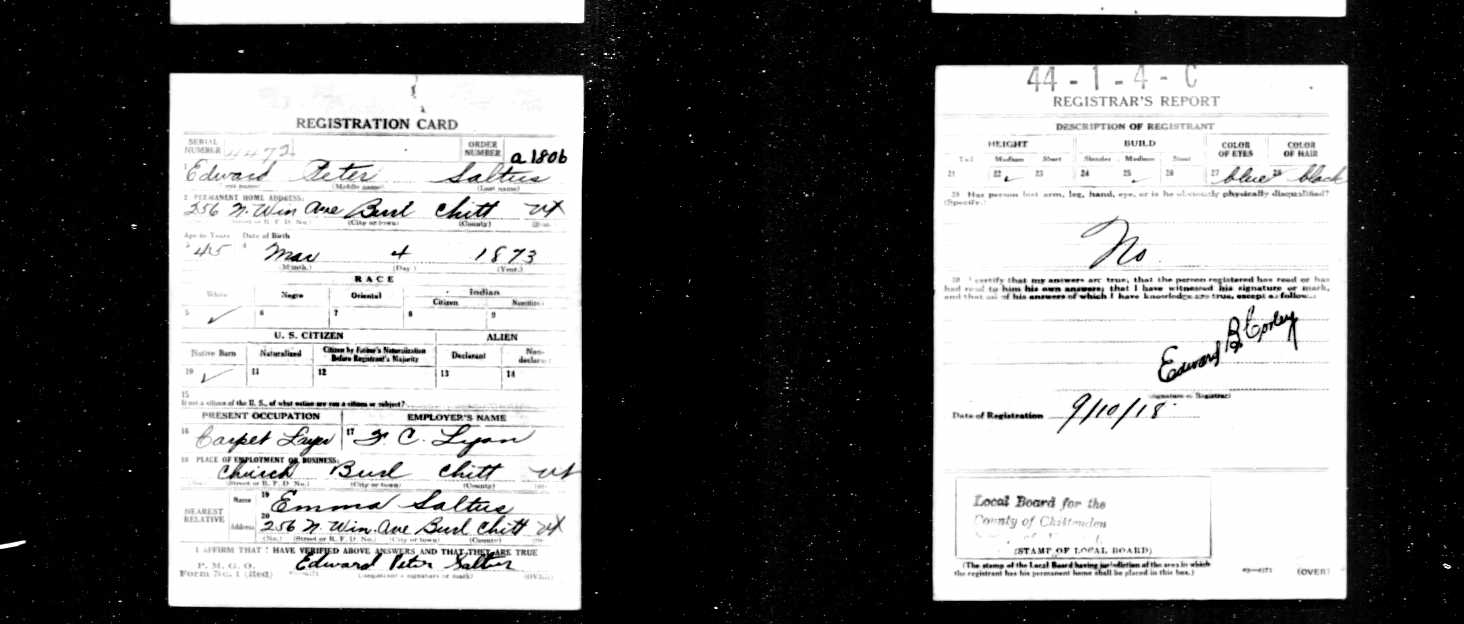 REGISTRATION CARD
SERIAL NUMBER 4472
ORDER NUMBER a 1806
1 Edward Peter Saltus
(Middle name) (Last name)
2 PERMANENT HOME ADDRESS:
256 N. Win Ave Burl Chitt Vt
(City or town) (County)
Age in Years Date of Birth
3 45 4 Mar 4 1873
(Month.) (Day) (Year.)
RACE
White Negro Oriental Indian
Citizen
5 ✓ 6 7 8 9
U. S. CITIZEN ALIEN
Native Born Naturalized Citizen by Father's Naturalization Before Registrant's Majority Declarant Non-declarant
10 ✓ 11 12 13 14
15
If not a citizen of the U. S., of what nation are you a citizen or subject?
PRESENT OCCUPATION EMPLOYER'S NAME
16 Carpet Layer 17 F. C. Lyon
18 PLACE OF EMPLOYMENT OR BUSINESS:
Church Burl Chitt Vt
(No.) (Street or R. F. D. No.) (City or town) (County)
NEAREST RELATIVE Name 19 Emma Saltus
Address 20 256 N. Win. Ave Burl Chitt Vt
(No.) (Street or R. F. D. No.) (City or town) (County)
I AFFIRM THAT I HAVE VERIFIED ABOVE ANSWERS AND THAT THEY ARE TRUE
P. M. G. O.
Form No. 1 (Red) Edward Peter Saltus
(Registrant's signature or mark) (OVER)
44-1-4-C
REGISTRAR'S REPORT
DESCRIPTION OF REGISTRANT
HEIGHT BUILD COLOR OF EYES COLOR OF HAIR
Tall Medium Short Slender Medium Stout
21 22 ✓ 23 24 25 ✓ 26 27 blue 28 black
29 Has person lost arm, leg, hand, eye, or is he obviously physically disqualified?
(Specify.)
No
30 I certify that my answers are true; that the person registered has read or has
had read to him his own answers; that I have witnessed his signature or mark,
and that all of his answers of which I have knowledge are true, except as follows:
Edward B. Corley
(Signature of Registrar)
Date of Registration 9/10/18
Local Board for the
County of Chittenden
(STAMP OF LOCAL BOARD)
(The stamp of the Local Board having jurisdiction of the area in which
the registrant has his permanent home shall be placed in this box.)
(OVER)